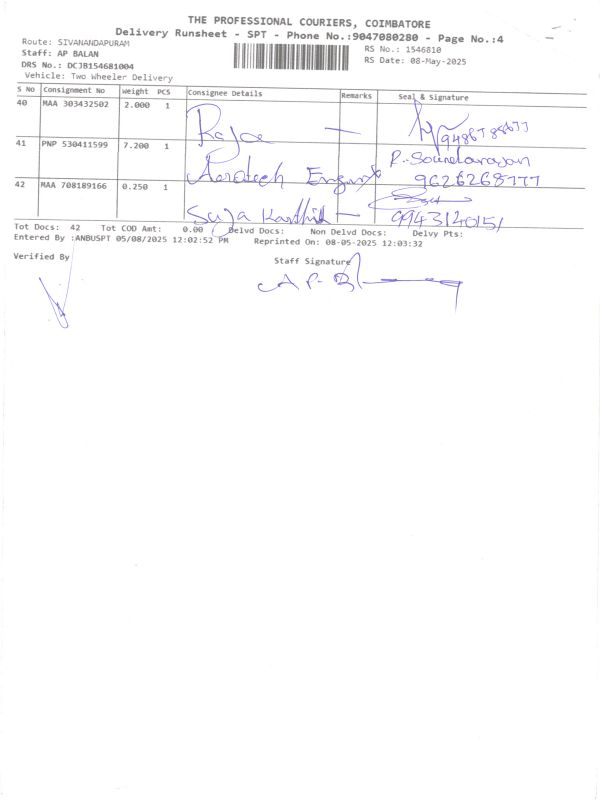 THE PROFESSIONAL COURIERS, COIMBATORE
Delivery Runsheet - SPT - Phone No.:9047080280 - Page No.:4
Route: SIVANANDAPURAM
RS No.: 1546810
Staff: AP BALAN
RS Date: 08-May-2025
DRS No.: DCJB154681004
Vehicle: Two Wheeler Delivery
S No Consignment No Weight PCS Consignee Details Remarks Seal & Signature
40 MAA 303432502 2.000 1 Raja
41 PNP 530411599 7.200 1 Aerotech P. Soundararajan 9626268777
42 MAA 708189166 0.250 1 Suja Karthik 9943140151
Tot Docs: 42 Tot COD Amt: 0.00 Delvd Docs: Non Delvd Docs: Delvy Pts:
Entered By :ANBUSPT 05/08/2025 12:02:52 PM Reprinted On: 08-05-2025 12:03:32
Verified By Staff Signature
A P. B